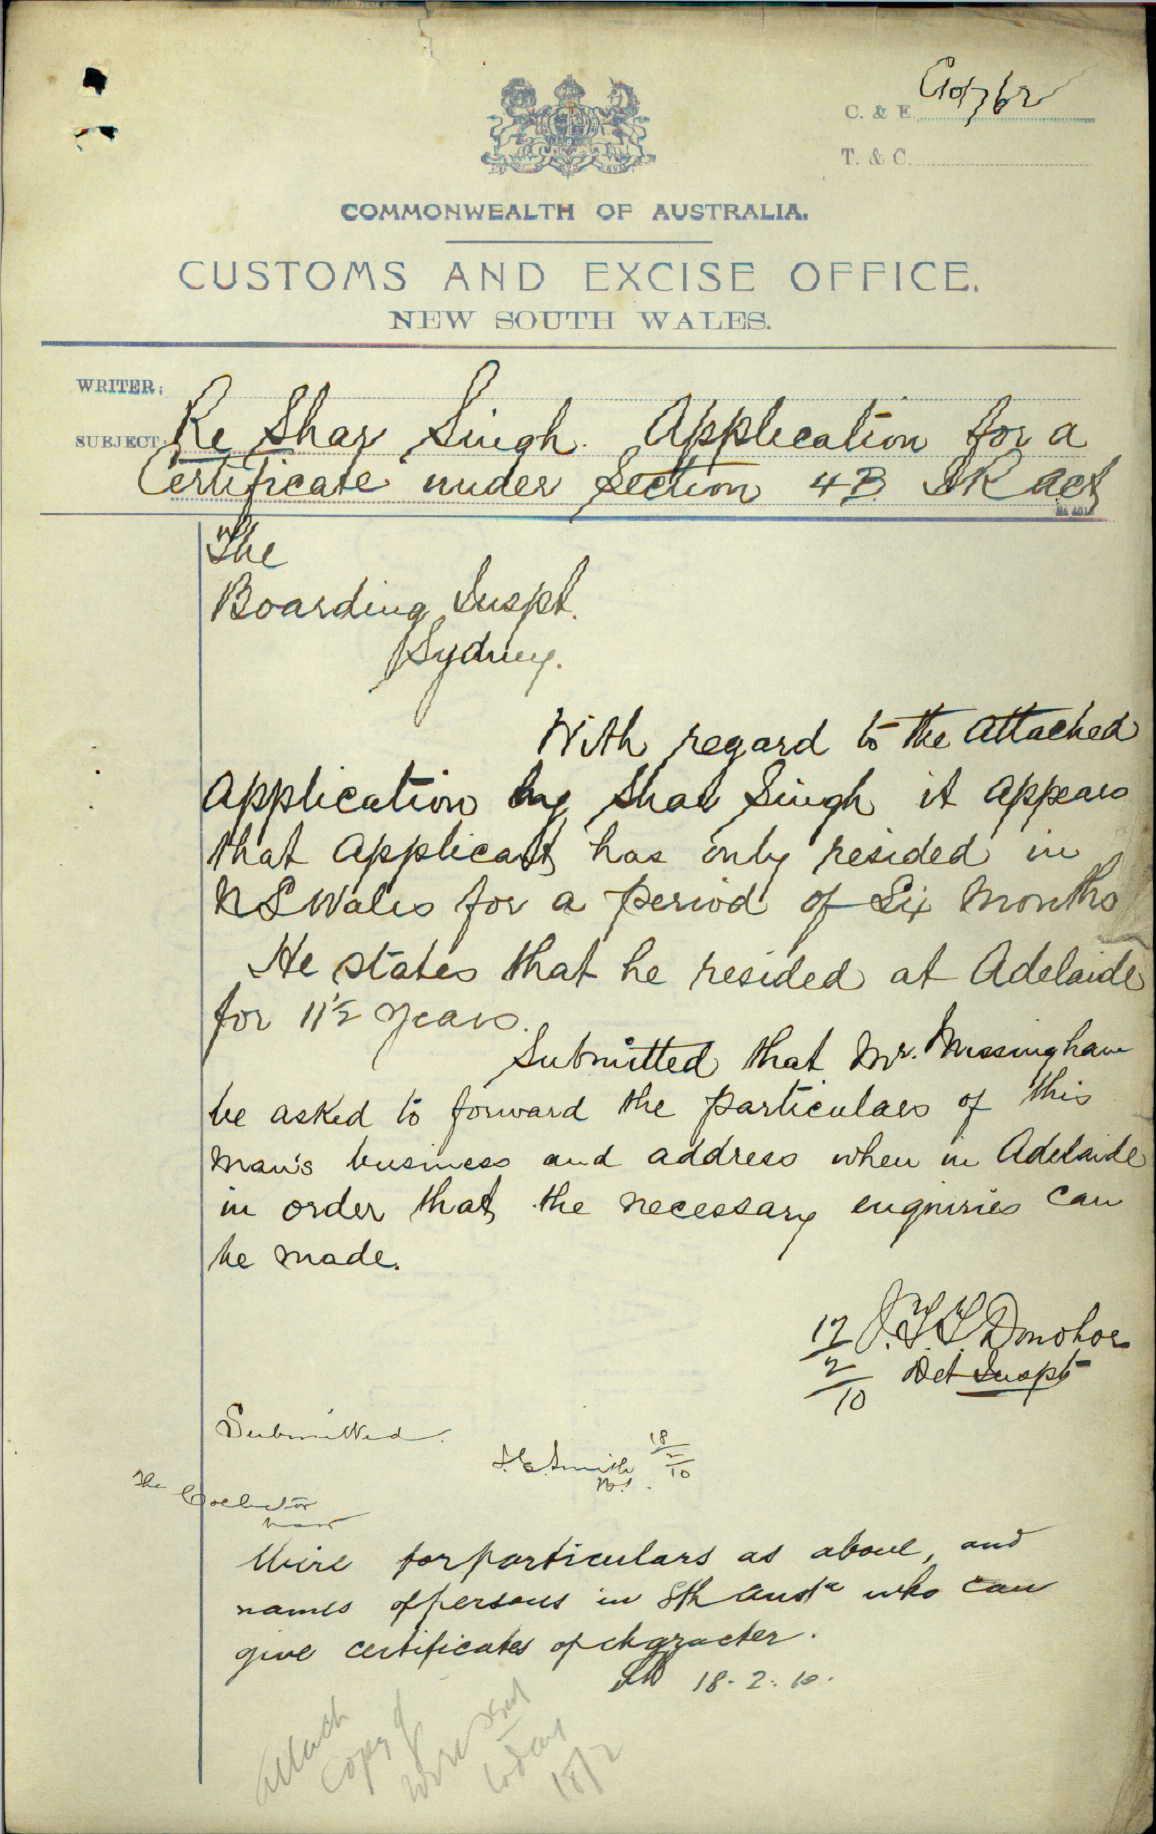 C. & E.
T. & C.
COMMONWEALTH OF AUSTRALIA.
CUSTOMS AND EXCISE OFFICE.
NEW SOUTH WALES.
WRITER:
SUBJECT: Re Shar Singh. Application for a
Certificate under Section 4B IR Act
The
Boarding Inspt.
Sydney.
With regard to the attached
Application by Shar Singh it appears
that applicant has only resided in
N S Wales for a period of Six Months
He states that he resided at Adelaide
for 11½ years.
Submitted that Mr. Massingham
be asked to forward the particulars of this
man's business and address when in Adelaide
in order that the necessary enquiries can
be made.
J.T.T. Donohoe
17/2/10 Det Inspt
Submitted.
Smith 18/2/10
The Collector
Wire for particulars as above, and
names of persons in Sth Austa who can
give certificates of character.
18.2.10.
Attach
copy of
wire sent
today
18/2